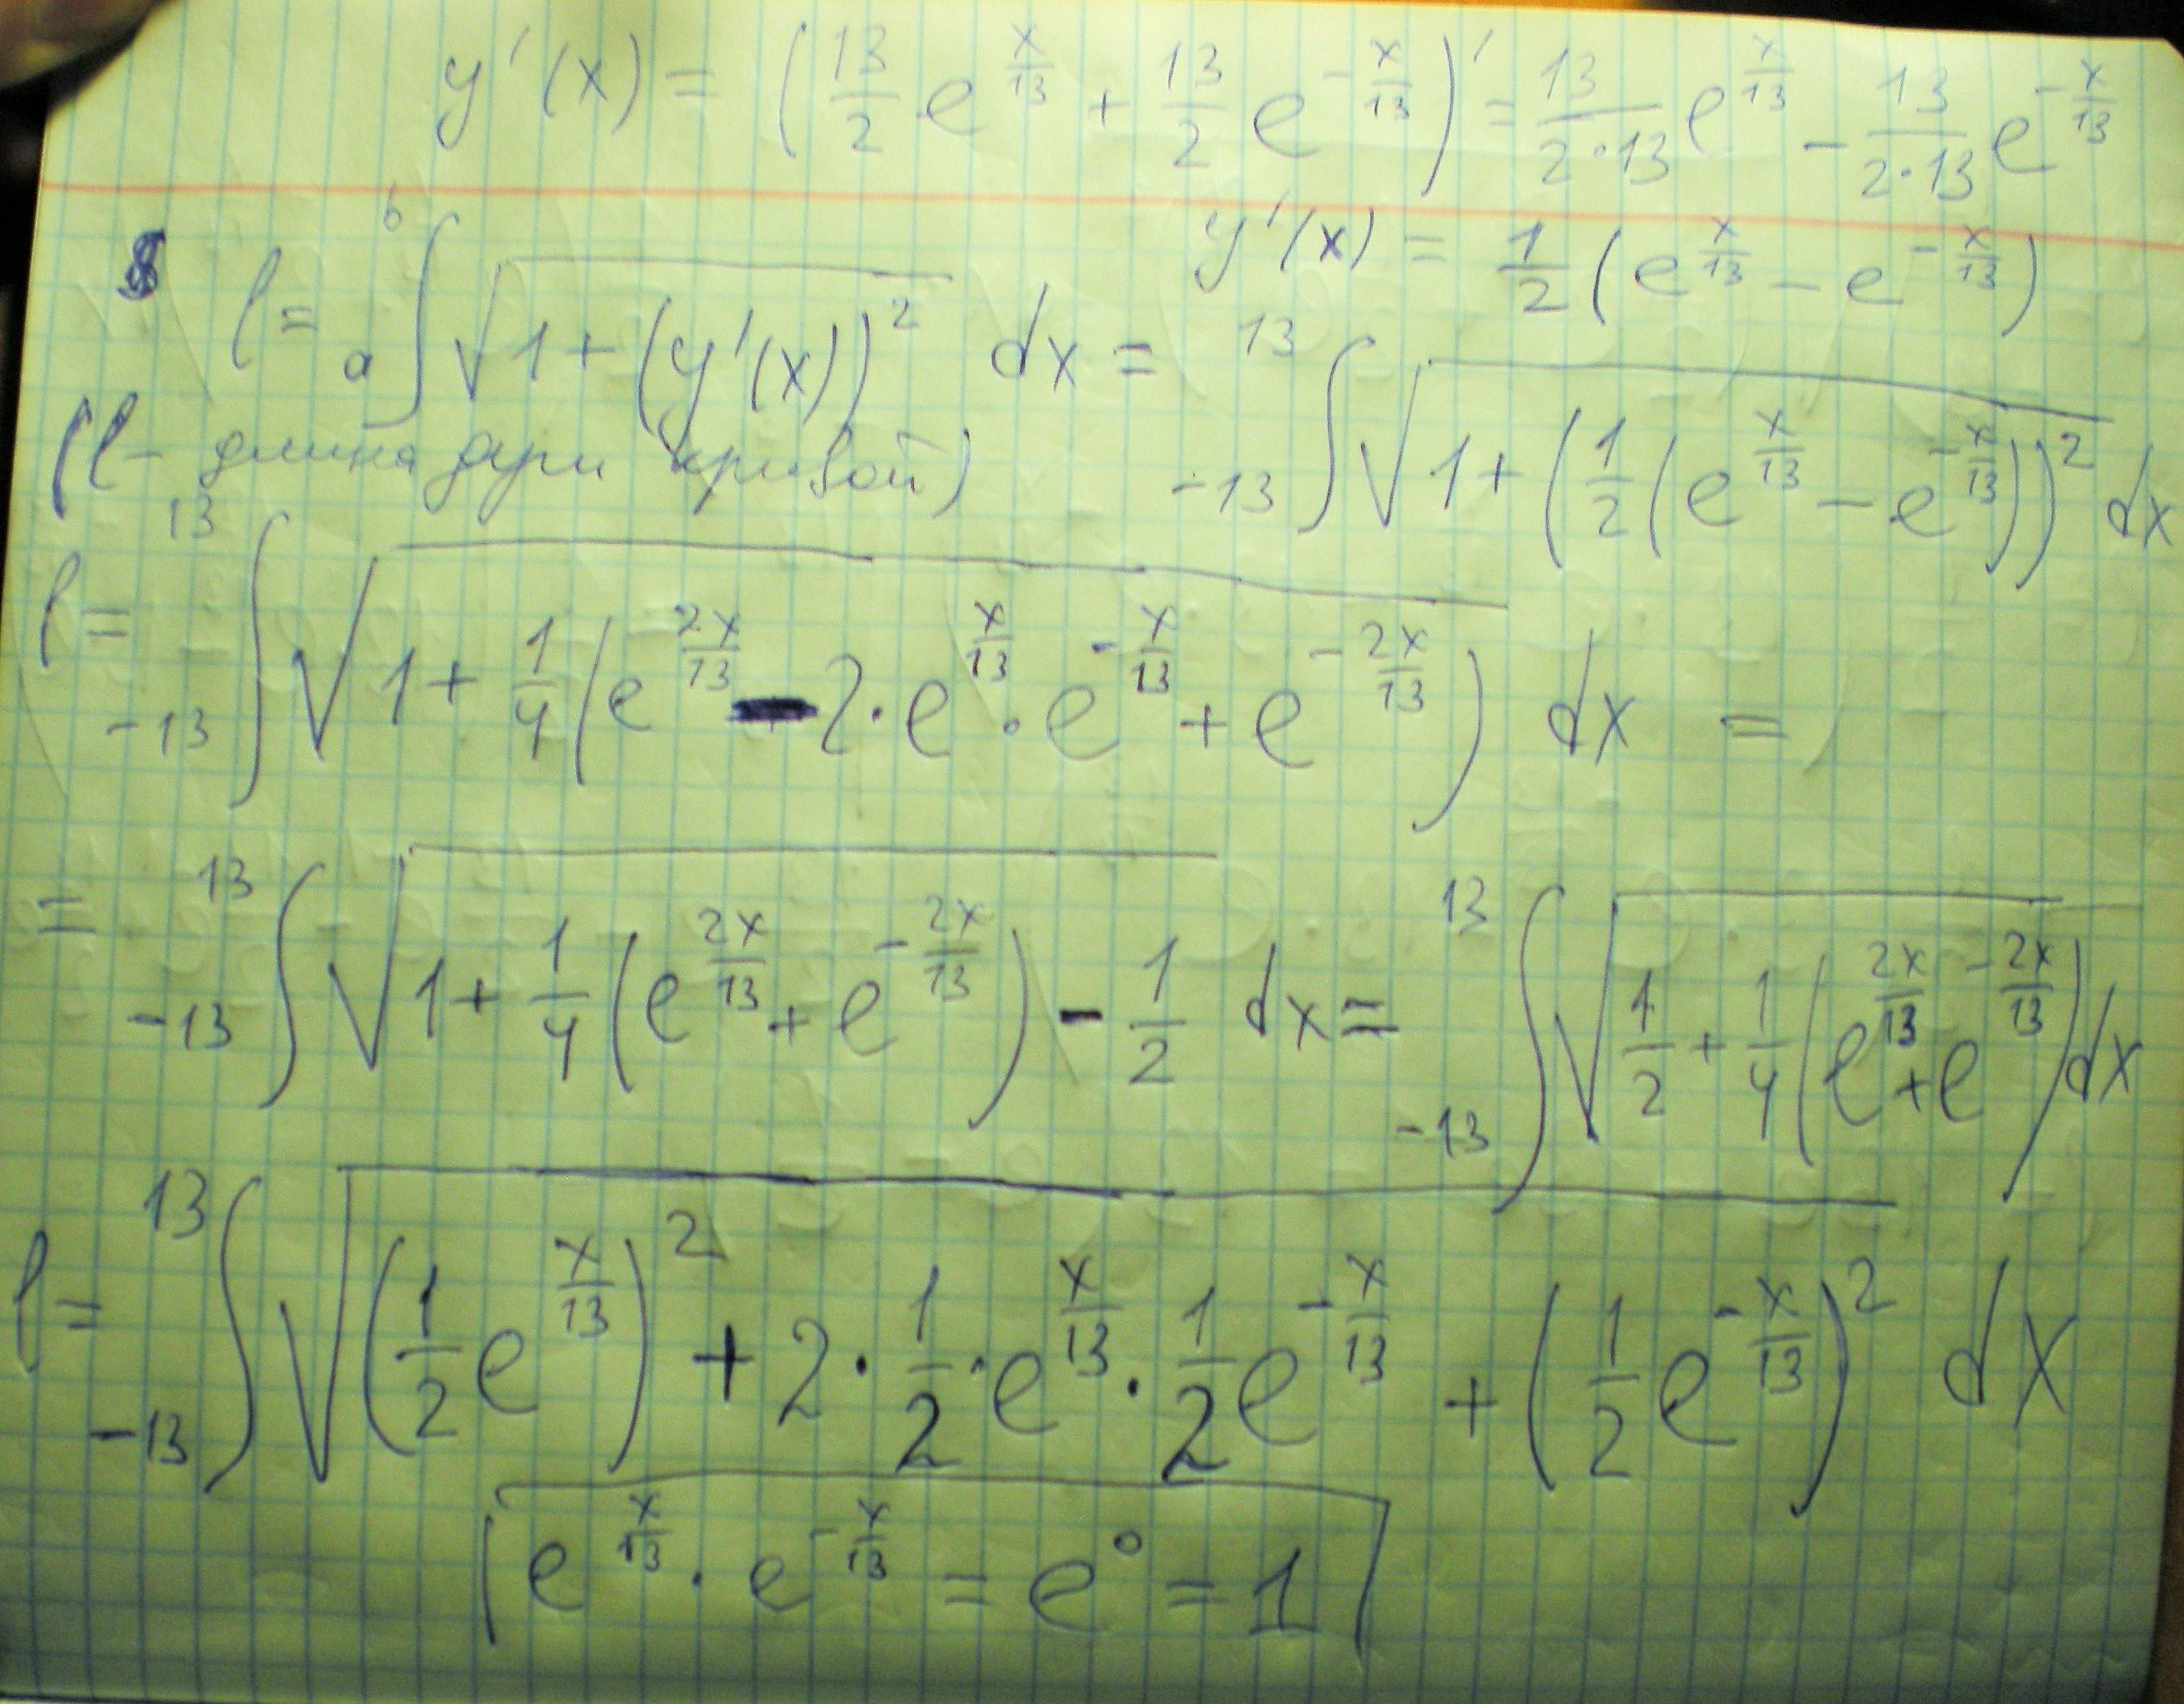 y'(x) = (13/2 e^(x/13) + 13/2 e^(-x/13))' = 13/(2·13) e^(x/13) - 13/(2·13) e^(-x/13)
y'(x) = 1/2 (e^(x/13) - e^(-x/13))
l = a∫b √(1 + (y'(x))²) dx = -13∫13 √(1 + (1/2 (e^(x/13) - e^(-x/13)))²) dx
(l - длина дуги кривой)
l = -13∫13 √(1 + 1/4 (e^(2x/13) - 2·e^(x/13)·e^(-x/13) + e^(-2x/13))) dx =
= -13∫13 √(1 + 1/4 (e^(2x/13) + e^(-2x/13)) - 1/2) dx = -13∫13 √(1/2 + 1/4 (e^(2x/13) + e^(-2x/13))) dx
l = -13∫13 √((1/2 e^(x/13))² + 2·1/2·e^(x/13)·1/2 e^(-x/13) + (1/2 e^(-x/13))²) dx
e^(x/13) · e^(-x/13) = e⁰ = 1